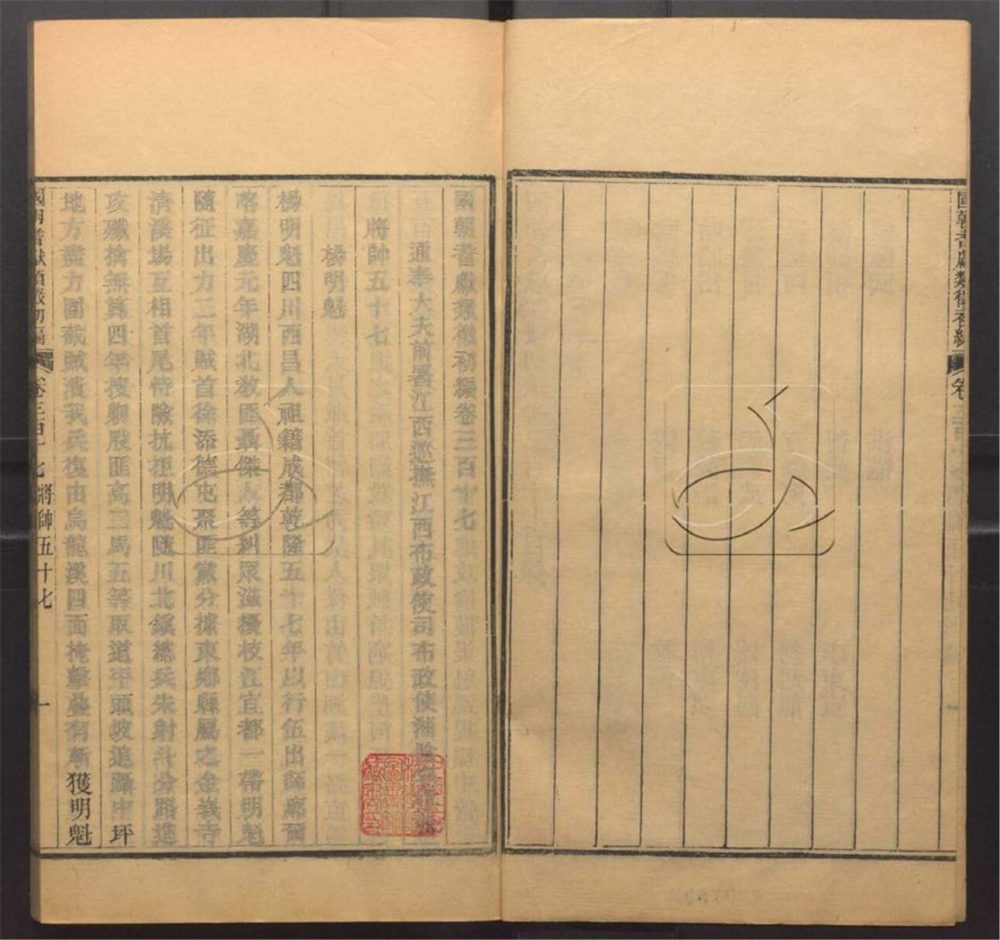 國朝耆獻類徵初編
國朝耆獻類徵初編卷三百十七
通奉大夫前署江西巡撫江西布政使司布政使湘陰李
將帥五十七
楊明魁
楊明魁四川西昌人祖籍成都乾隆五十七年以行伍出師廓爾
喀嘉慶元年湖北教匪聶傑人等糾眾滋擾枝江宜都一帶明魁
隨征出力二年賊首徐添德屯聚匪黨分據東鄉縣屬之金峩寺
清溪場互相首尾恃險抗拒明魁隨川北鎮總兵朱射斗分路進
攻殲擒無算四年搜勦股匪高三馬五等取道平頭坡追躡中坪
地方盡力圍截賊濱我兵復由烏龍溪四面掩擊擒有斬獲明魁
國朝耆獻類徵初編
卷三百十七將帥五十七
一